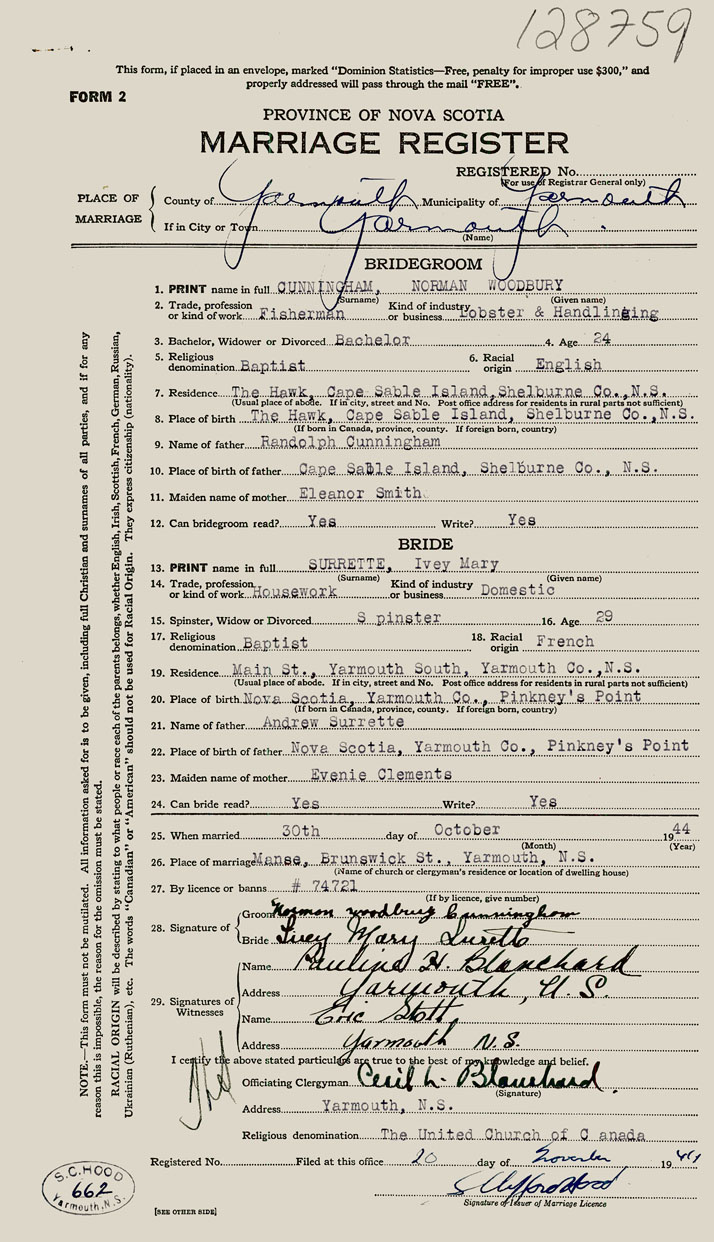 128759
This form, if placed in an envelope, marked "Dominion Statistics—Free, penalty for improper use $300," and
properly addressed will pass through the mail "FREE".
FORM 2
PROVINCE OF NOVA SCOTIA
MARRIAGE REGISTER
REGISTERED No.
(For use of Registrar General only)
PLACE OF MARRIAGE
County of Yarmouth Municipality of Yarmouth
If in City or Town Yarmouth
(Name)
BRIDEGROOM
1. PRINT name in full CUNNINGHAM, NORMAN WOODBURY
(Surname) (Given name)
2. Trade, profession or kind of work Fisherman Kind of industry or business Lobster & Handlinging
3. Bachelor, Widower or Divorced Bachelor 4. Age 24
5. Religious denomination Baptist 6. Racial origin English
7. Residence The Hawk, Cape Sable Island, Shelburne Co., N.S.
(Usual place of abode. If in city, street and No. Post office address for residents in rural parts not sufficient)
8. Place of birth The Hawk, Cape Sable Island, Shelburne Co., N.S.
(If born in Canada, province, county. If foreign born, country)
9. Name of father Randolph Cunningham
10. Place of birth of father Cape Sable Island, Shelburne Co., N.S.
11. Maiden name of mother Eleanor Smith
12. Can bridegroom read? Yes Write? Yes
BRIDE
13. PRINT name in full SURRETTE, Ivey Mary
(Surname) (Given name)
14. Trade, profession or kind of work Housework Kind of industry or business Domestic
15. Spinster, Widow or Divorced S pinster 16. Age 29
17. Religious denomination Baptist 18. Racial origin French
19. Residence Main St., Yarmouth South, Yarmouth Co., N.S.
(Usual place of abode. If in city, street and No. Post office address for residents in rural parts not sufficient)
20. Place of birth Nova Scotia, Yarmouth Co., Pinkney's Point
(If born in Canada, province, county. If foreign born, country)
21. Name of father Andrew Surrette
22. Place of birth of father Nova Scotia, Yarmouth Co., Pinkney's Point
23. Maiden name of mother Evenie Clements
24. Can bride read? Yes Write? Yes
25. When married 30th day of October 1944
(Month) (Year)
26. Place of marriage Manse, Brunswick St., Yarmouth, N.S.
(Name of church or clergyman's residence or location of dwelling house)
27. By licence or banns # 74721
(If by licence, give number)
28. Signature of
Groom Norman Woodbury Cunningham
Bride Ivey Mary Surette
29. Signatures of Witnesses
Name Pauline H. Blanchard
Address Yarmouth, N.S.
Name Eric Stott
Address Yarmouth N.S.
I certify the above stated particulars are true to the best of my knowledge and belief.
Officiating Clergyman Cecil L. Blanchard
(Signature)
Address Yarmouth, N.S.
Religious denomination The United Church of C anada
Registered No. Filed at this office 20 day of November 1944
S Clifford Hood
Signature of Issuer of Marriage Licence
[SEE OTHER SIDE]
S.C. HOOD
662
Yarmouth, N.S.
NOTE.—This form must not be mutilated. All information asked for is to be given, including full Christian and surnames of all parties, and if for any
reason this is impossible, the reason for the omission must be stated.
RACIAL ORIGIN will be described by stating to what people or race each of the parents belongs, whether English, Irish, Scottish, French, German, Russian,
Ukrainian (Ruthenian), etc. The words "Canadian" or "American" should not be used for Racial Origin. They express citizenship (nationality).